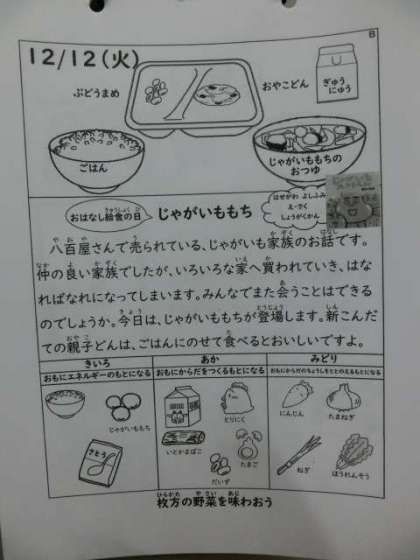 B
12/12(火)
ぶどうまめ
おやこどん
ぎゅう
にゅう
ごはん
じゃがいももちの
おつゆ
おはなし給食の日
じゃがいももち
はせがわ よしふみ
え・さく
しょうがくかん
八百屋さんで売られている、じゃがいも家族のお話です。
仲の良い家族でしたが、いろいろな家へ買われていき、はな
ればなれになってしまいます。みんなでまた会うことはできる
のでしょうか。今日は、じゃがいももちが登場します。新こんだ
ての親子どんは、ごはんにのせて食べるとおいしいですよ。
きいろ
あか
みどり
おもにエネルギーのもとになる
おもにからだをつくるもとになる
おもにからだのちょうしをととのえるもとになる
じゃがいももち
さとう
とりにく
いとかまぼこ
たまご
だいず
にんじん
たまねぎ
ねぎ
ほうれんそう
枚方の野菜を味わおう